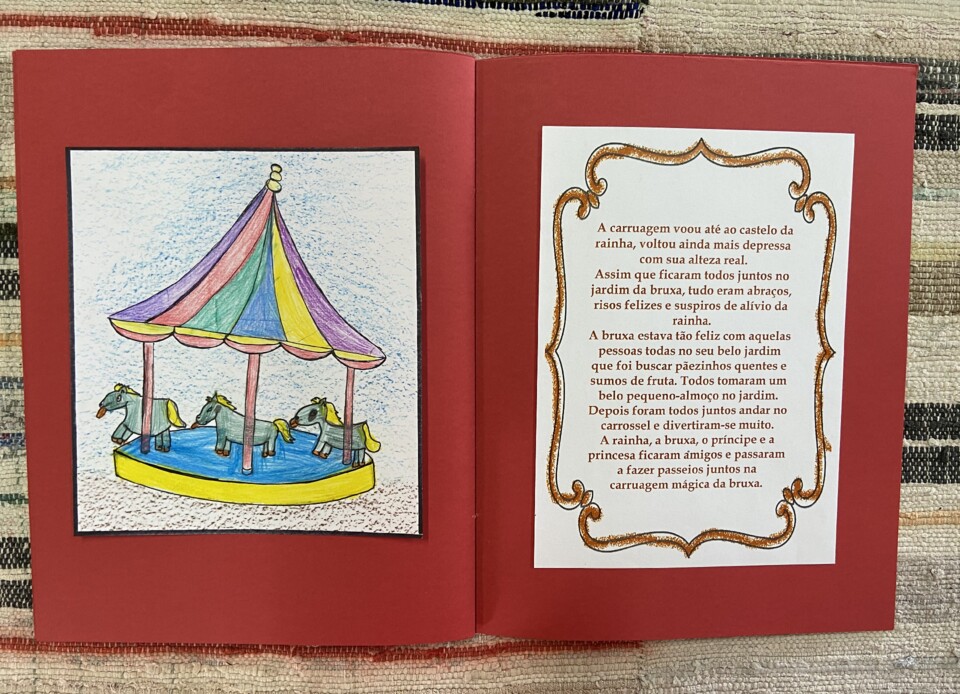 A carruagem voou até ao castelo da
rainha, voltou ainda mais depressa
com sua alteza real.
Assim que ficaram todos juntos no
jardim da bruxa, tudo eram abraços,
risos felizes e suspiros de alívio da
rainha.
A bruxa estava tão feliz com aquelas
pessoas todas no seu belo jardim
que foi buscar pãezinhos quentes e
sumos de fruta. Todos tomaram um
belo pequeno-almoço no jardim.
Depois foram todos juntos andar no
carrossel e divertiram-se muito.
A rainha, a bruxa, o príncipe e a
princesa ficaram ámigos e passaram
a fazer passeios juntos na
carruagem mágica da bruxa.